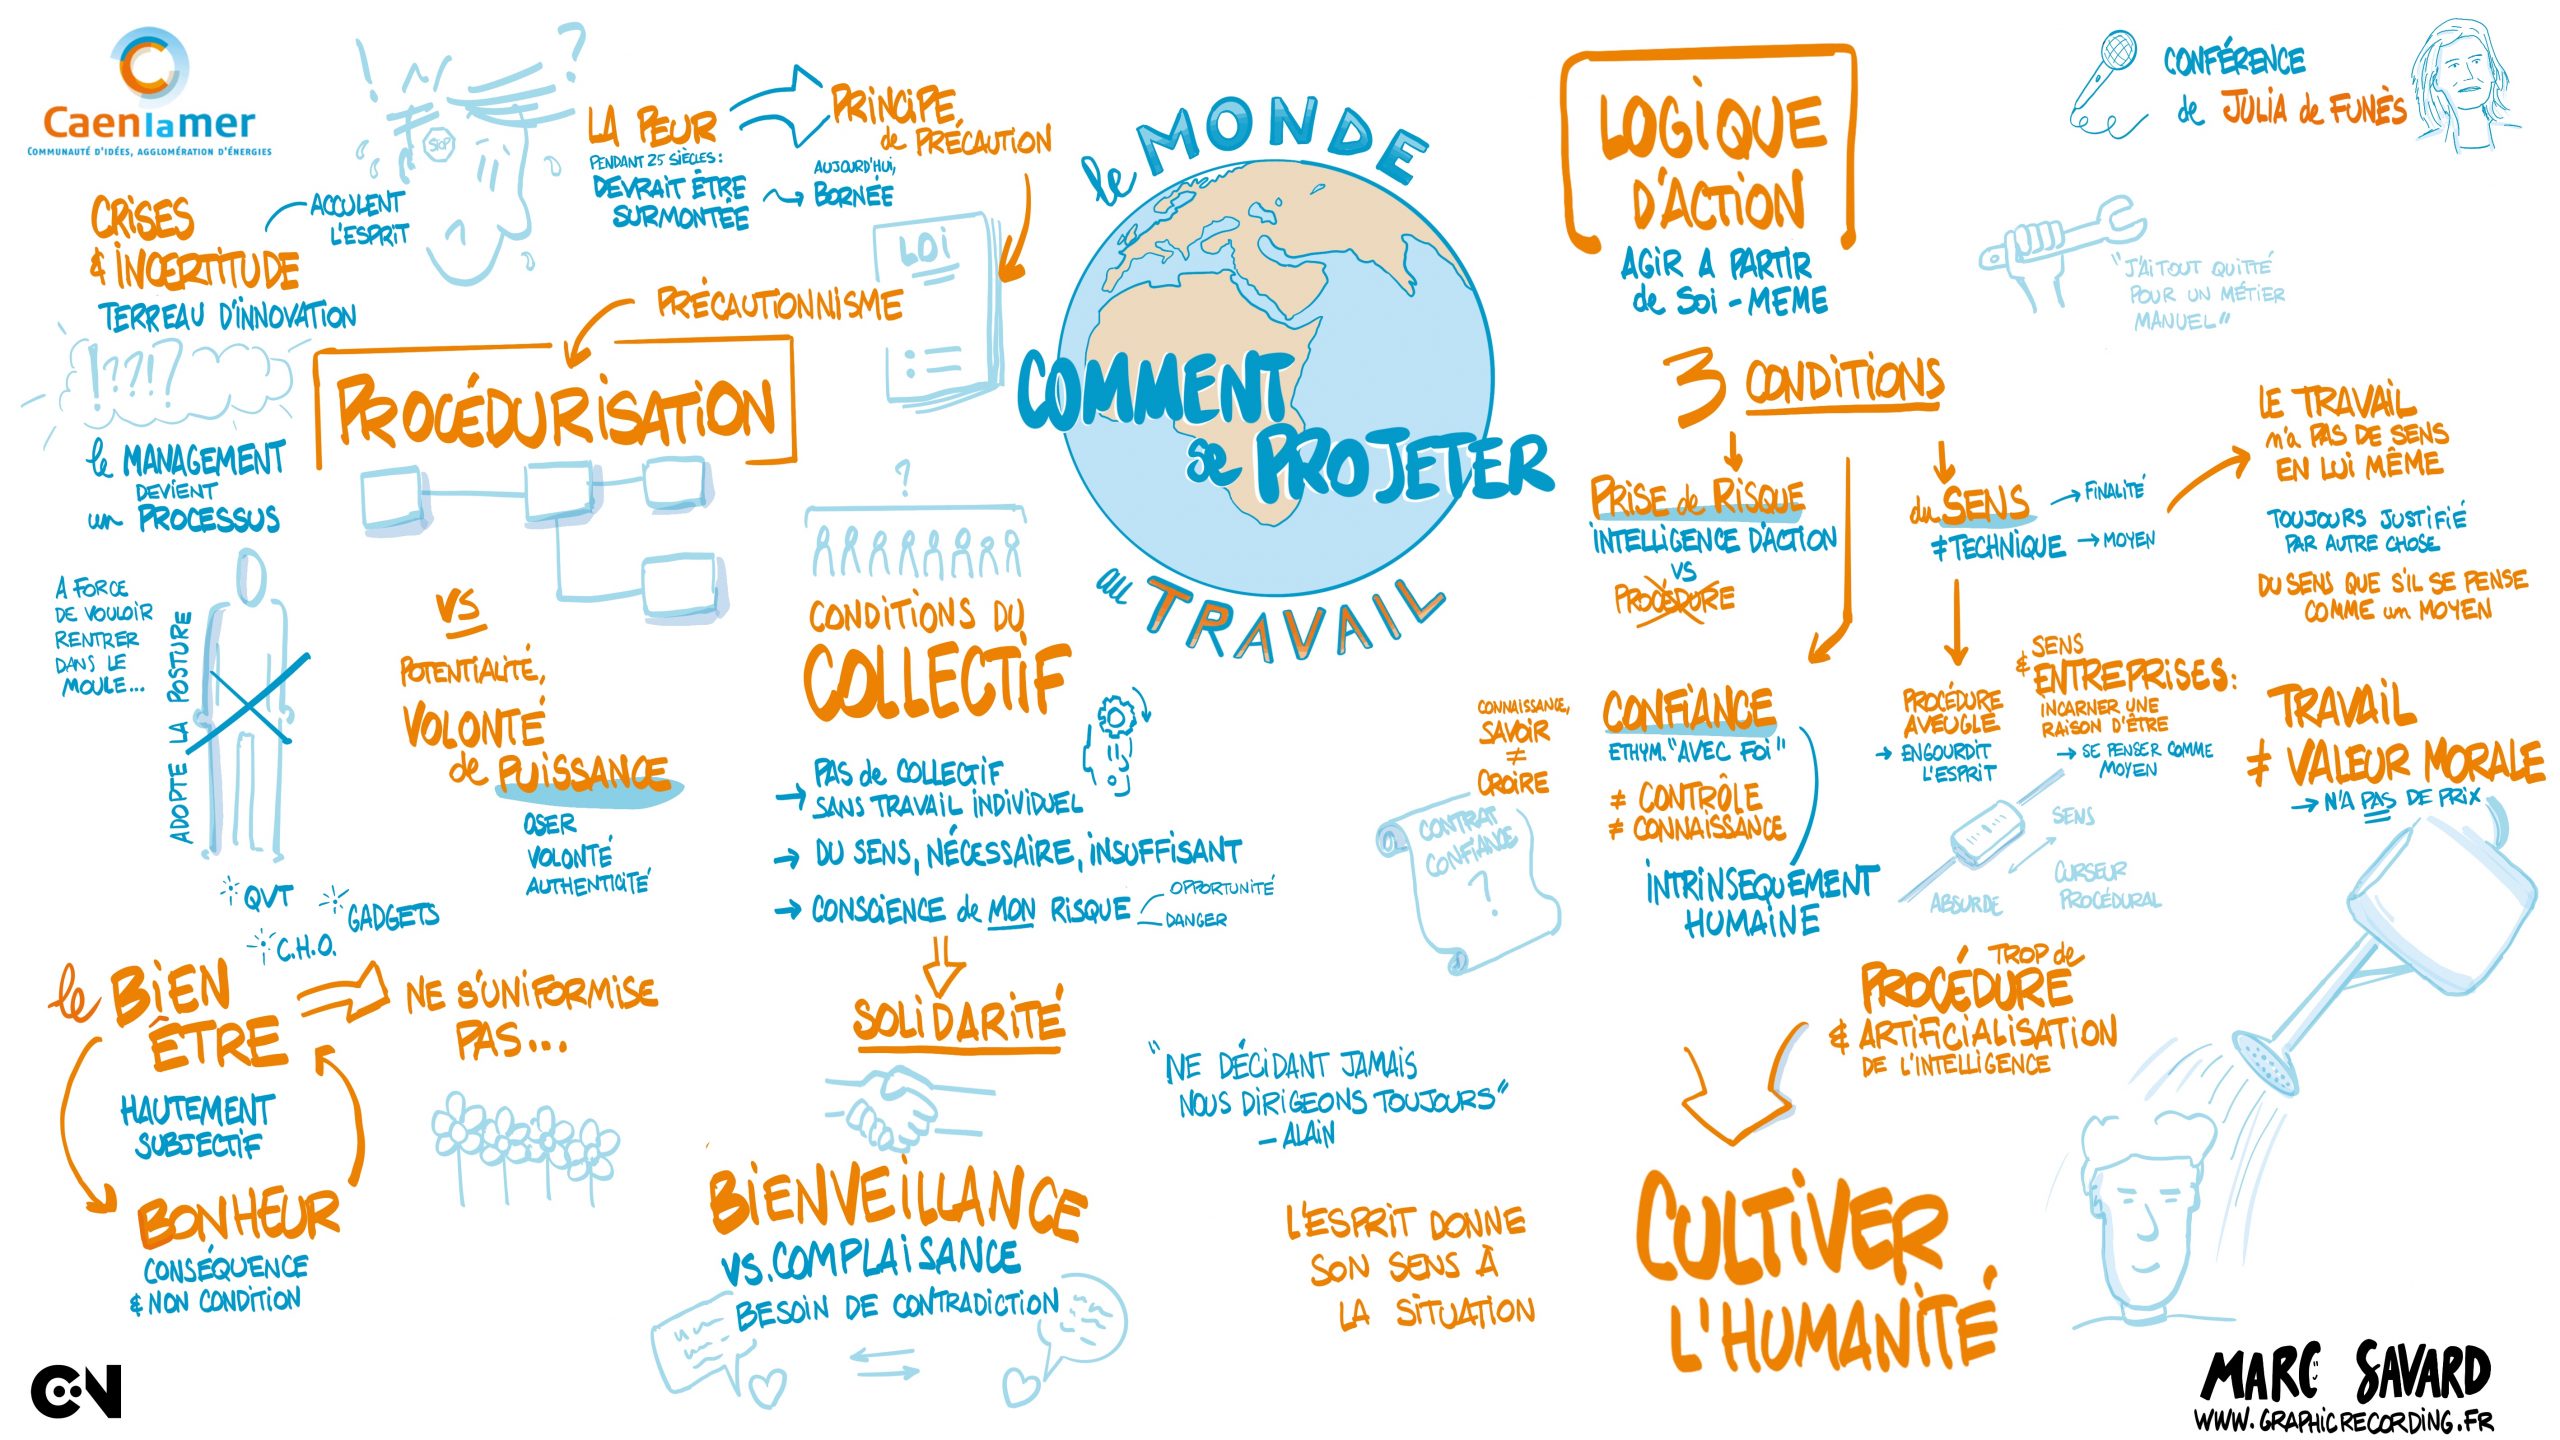 Caenlamer
COMMUNAUTÉ D'IDÉES, AGGLOMÉRATION D'ÉNERGIES
CRISES
& INCERTITUDE
TERREAU D'INNOVATION
ACCULENT
L'ESPRIT
!??!?
! ?
STOP
LA PEUR
PENDANT 25 SIÈCLES :
DEVRAIT ÊTRE
SURMONTÉE
PRINCIPE
de PRÉCAUTION
AUJOURD'HUI,
BORNÉE
LOI
PRÉCAUTIONNISME
PROCÉDURISATION
le MANAGEMENT
DEVIENT
un PROCESSUS
A FORCE
DE VOULOIR
RENTRER
DANS LE
MOULE...
ADOPTE LA POSTURE
VS
POTENTIALITÉ,
VOLONTÉ
de PUISSANCE
OSER
VOLONTÉ
AUTHENTICITÉ
QVT
GADGETS
C.H.O.
le BIEN
ÊTRE
NE S'UNIFORMISE
PAS...
HAUTEMENT
SUBJECTIF
BONHEUR
CONSÉQUENCE
& NON CONDITION
?
CONDITIONS DU
COLLECTIF
→ PAS de COLLECTIF
SANS TRAVAIL INDIVIDUEL
→ DU SENS, NÉCESSAIRE, INSUFFISANT
→ CONSCIENCE de MON RISQUE
OPPORTUNITÉ
DANGER
SOLIDARITÉ
BIENVEILLANCE
VS. COMPLAISANCE
BESOIN DE CONTRADICTION
le MONDE
COMMENT
se PROJETER
au TRAVAIL
"NE DÉCIDANT JAMAIS
NOUS DIRIGEONS TOUJOURS"
- ALAIN
L'ESPRIT DONNE
SON SENS À
LA SITUATION
LOGIQUE
D'ACTION
AGIR A PARTIR
de SOI - MEME
3 CONDITIONS
PRISE de RISQUE
INTELLIGENCE D'ACTION
VS
PROCÉDURE
CONFIANCE
ETHYM. "AVEC FOI"
≠ CONTRÔLE
≠ CONNAISSANCE
INTRINSEQUEMENT
HUMAINE
CONNAISSANCE,
SAVOIR
≠
CROIRE
CONTRAT
CONFIANCE
?
du SENS → FINALITÉ
≠ TECHNIQUE → MOYEN
PROCÉDURE
AVEUGLE
→ ENGOURDIT
L'ESPRIT
SENS
& ENTREPRISES :
INCARNER UNE
RAISON D'ÊTRE
→ SE PENSER COMME
MOYEN
SENS
CURSEUR
PROCÉDURAL
ABSURDE
TROP de
PROCÉDURE
& ARTIFICIALISATION
DE L'INTELLIGENCE
CULTIVER
L'HUMANITÉ
CONFÉRENCE
de JULIA de FUNÈS
"J'AI TOUT QUITTÉ
POUR UN MÉTIER
MANUEL"
LE TRAVAIL
n'a PAS DE SENS
EN LUI MÊME
TOUJOURS JUSTIFIÉ
PAR AUTRE CHOSE
DU SENS QUE S'IL SE PENSE
COMME un MOYEN
TRAVAIL
≠ VALEUR MORALE
→ N'A PAS DE PRIX
C N
MARC SAVARD
WWW.GRAPHICRECORDING.FR